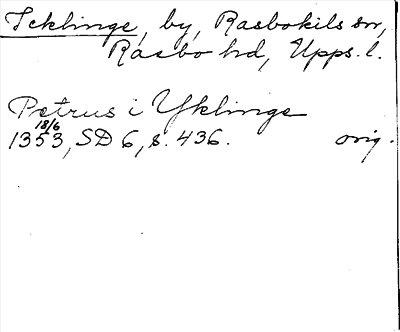 Icklinge, by, Rasbokils sn,
Rasbo hd, Upps. l.
Petrus i Yklinge
18/6
1353, SD 6, s. 436. orig.